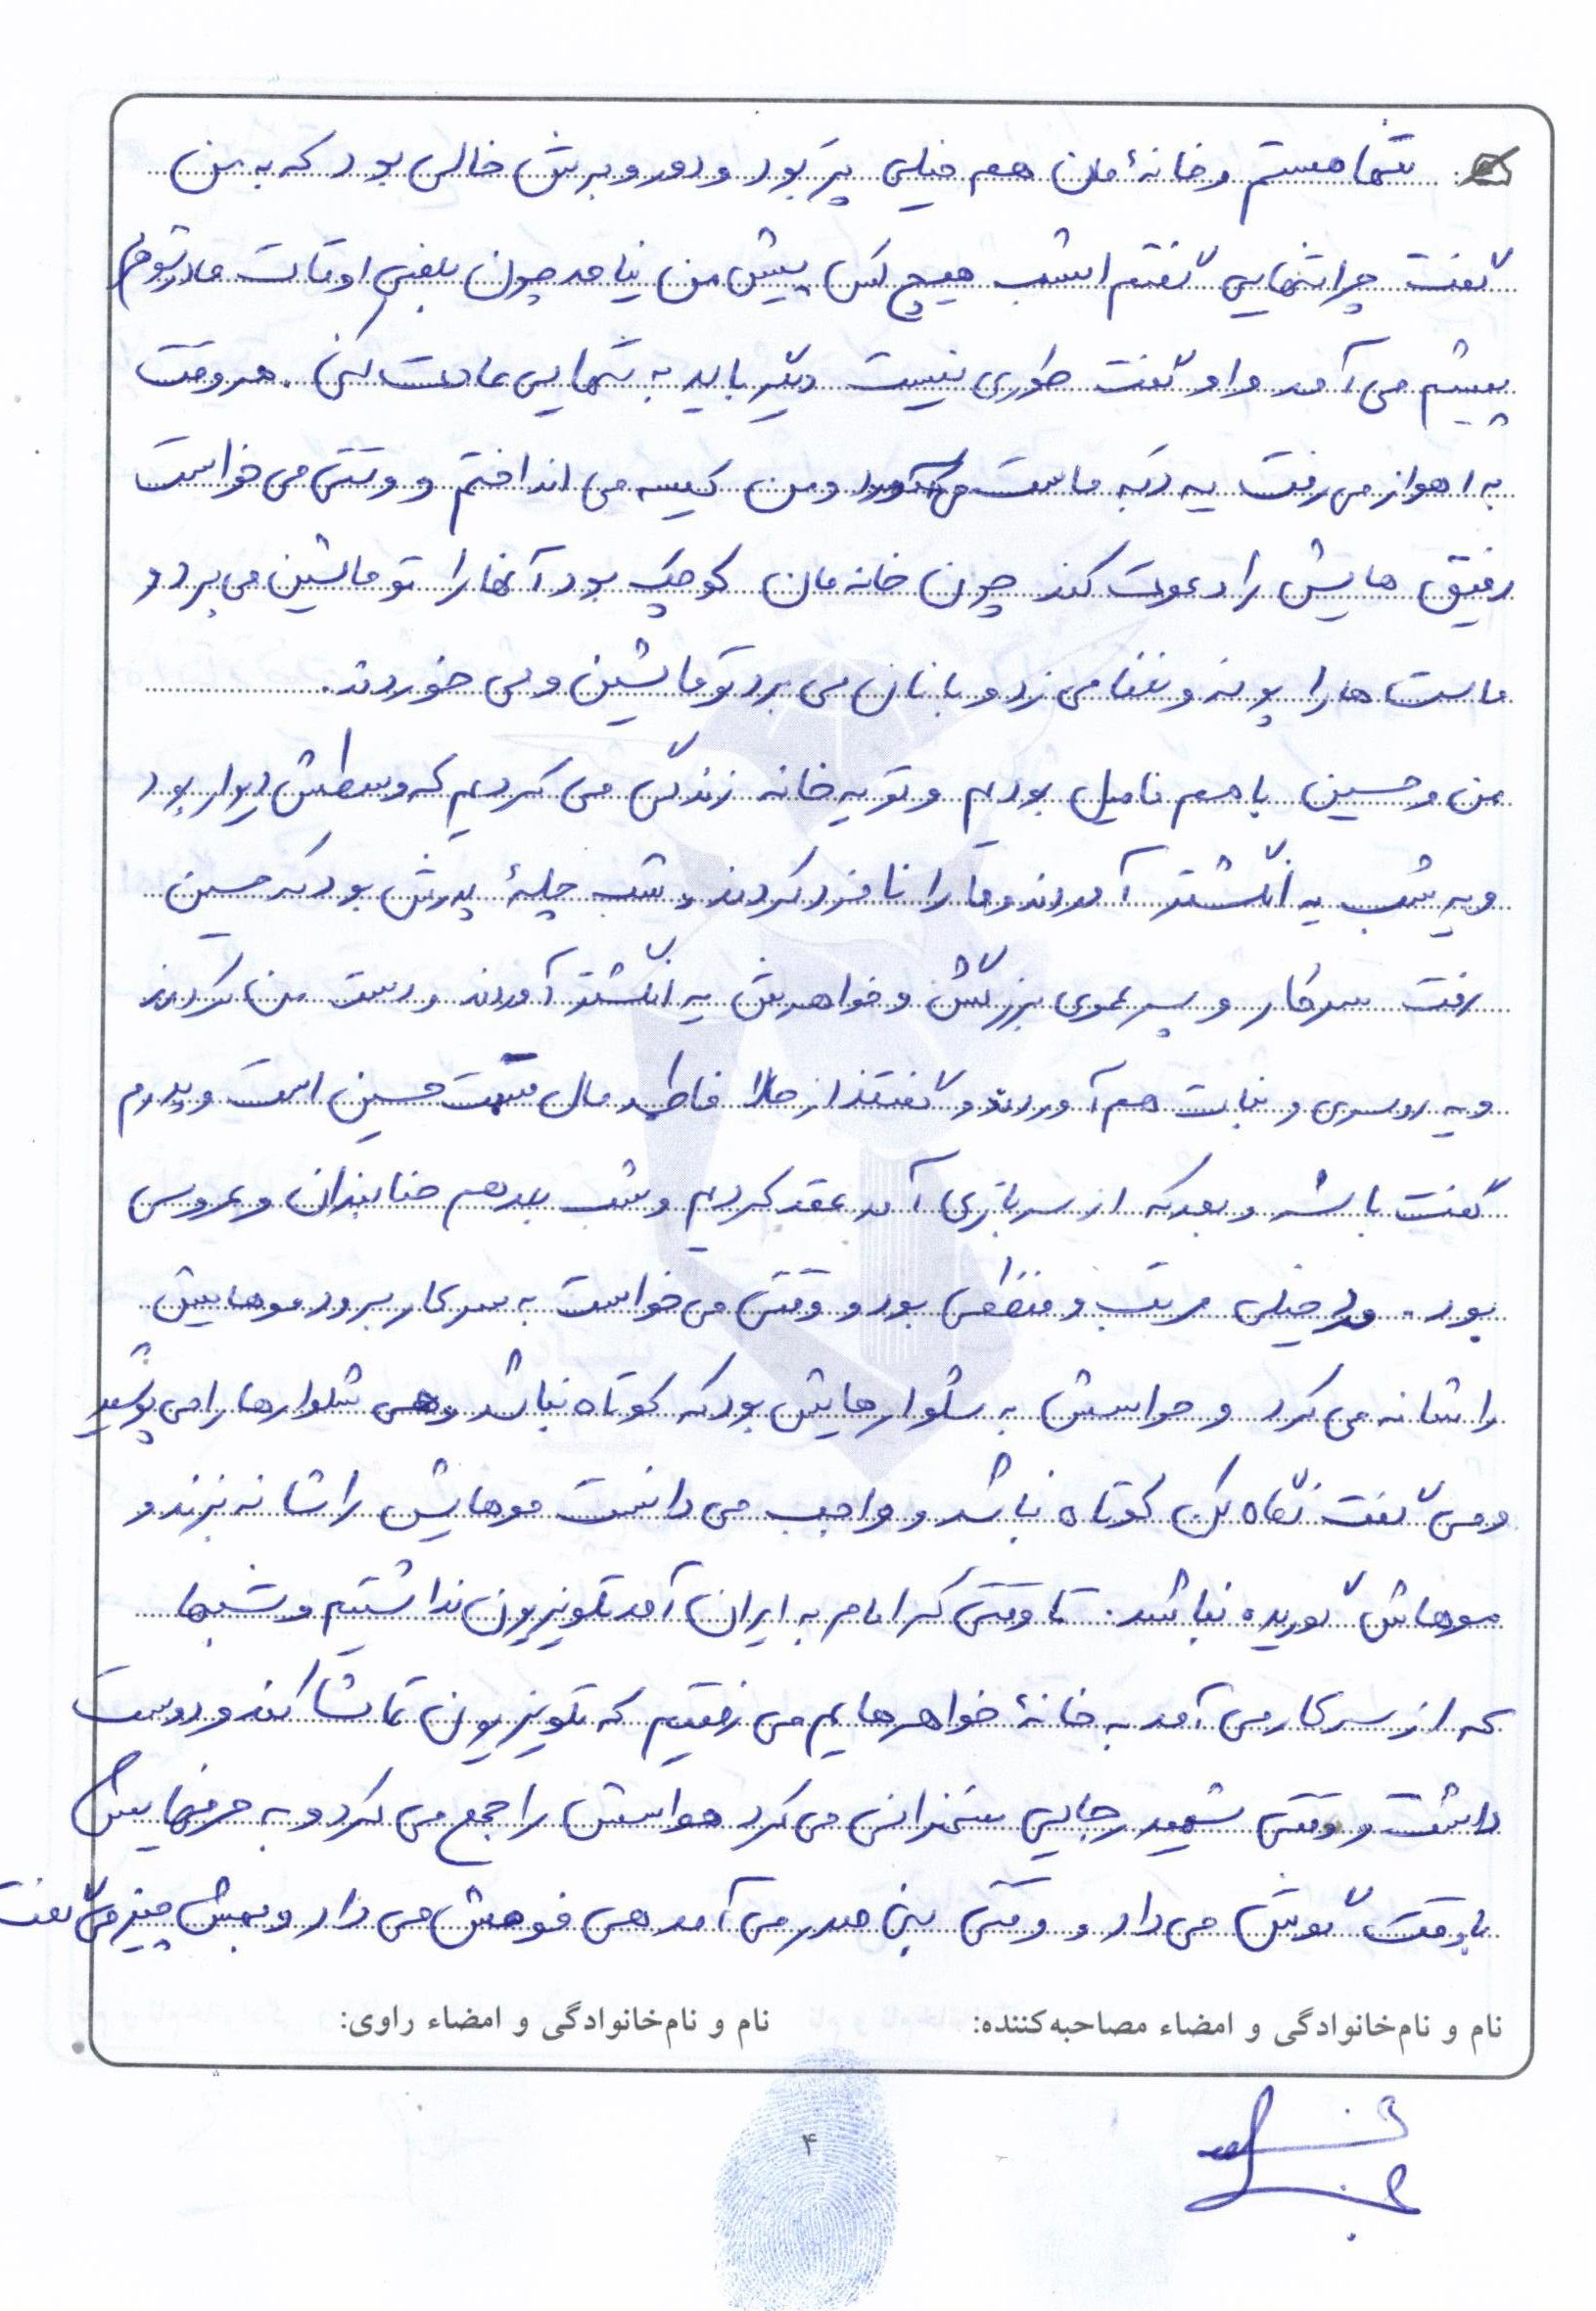 تنها هستم و خانهٔ مان هم خیلی پرَ بود و دور و برش خالی بود که به من
گفت چرا تنهایی گفتم امشب هیچ کس پیش من نیامد چون بعضی اوقات مادرشوهرم
پیشم می آمد و او گفت طوری نیست دیگر باید به تنهایی عادت کنی. هر وقت
به اهواز می رفت یه دَبه ماست می آورد و من کیسه می انداختم و وقتی می خواست
رفیق هایش را دعوت کند چون خانه مان کوچک بود آنها را تو ماشین می برد و
ماست ها را پونه و نعنا می زد و با نان می برد تو ماشین و می خوردند.
من و حسین با هم فامیل بودیم و تو یه خانه زندگی می کردیم که وسطش دیوار بود
و یه شب یه انگشتر آوردند و ما را نامزد کردند. شب چلهٔ پدرش بود که حسین
رفت سرکار و پسر عموی بزرگش و خواهرش یه انگشتر آوردند و دست من کردند
و یه روسری و نبات هم آوردند و گفتند از حالا فاطمه مال حسین است و پدرم
گفت باشه و بعد که از سربازی آمد عقد کردیم و شب بعد هم حنابندان و عروسی
بود. خیلی مرتب و منظمی بود و وقتی می خواست به سر کار برود موهایش
را شانه می کرد و حواسش به شلوارهایش بود که کوتاه نباشد و هی شلوارها را می پوشید
و می گفت نگاه کن کوتاه نباشد و واجب می دانست موهایش را شانه بزند و
موهاش گوریده نباشد. تا وقتی که امام به ایران آمد تلویزیون نداشتیم و شبها
که از سر کار می آمد به خانهٔ خواهرهایم می رفتیم که تلویزیون تماشا کند و دوست
داشت و وقتی شهید رجایی سخنرانی می کرد حواسش را جمع می کرد و به حرفهایش
با دقت گوش می داد و وقتی بنی صدر می آمد هی فوحش می داد و بهش چیز می گفت
نام و نام‌خانوادگی و امضاء مصاحبه‌کننده: نام و نام‌خانوادگی و امضاء راوی:
۴